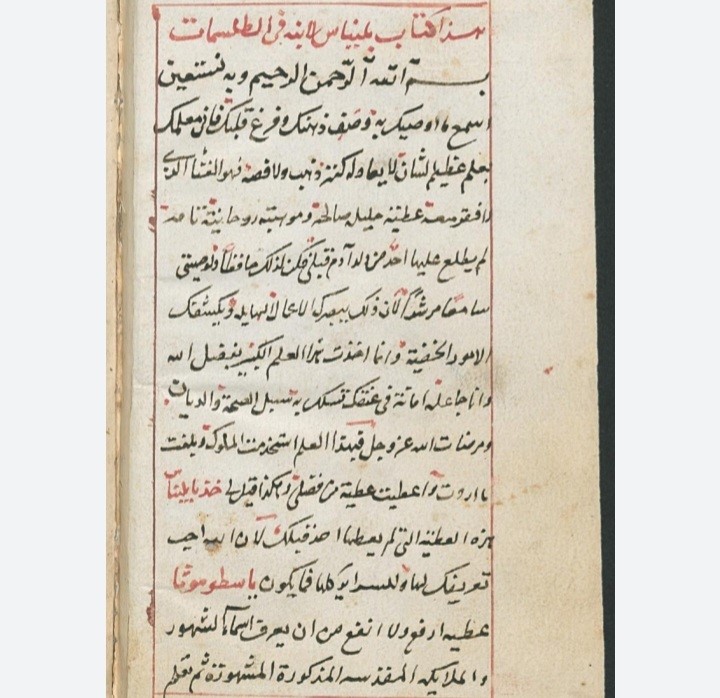 هذا كتاب بلنياس لابنه في الطلسمات
بسم الله الرحمن الرحيم وبه نستعين
اسمع ما اوصيك به وصف ذهنك وفرغ قلبك فاني معلمك
بعلم عظيم لشان لا يعادله كنز ذهب ولا فضه فهو الغنا الذي
لا فقر معه عطية جليله صالحة وموهبة روحانية تامة
لم يطلع عليها احد من ولد آدم قبلي فكن لذلك حافظا ولوصيتي
سامعا مرشدا لان ذلك يبصرك الاعمال الهايله ويكشف لك
الامور الخفية وانا اخذت هذا العلم الكبير بفضل الله
وانا جاعله امانة في عنقك تسلك به سبيل الصحة والديان
ومرضات الله عز وجل فبهذا العلم استخدمت الملوك وبلغت
ما اردت واعطيت عطية من فضلي وهكذا قيل لي خذ يا بلنيا
هذه العطية التي لم يعطها احد قبلك لان الله احب
تعريفك لها وللسراير كلها فما يكون يا سطوموثا
عطيه ارفع ولا انفع من ان يعرف اسماء الشهور
والملايكه المقدسه المذكورة المشهورة ثم تعلم